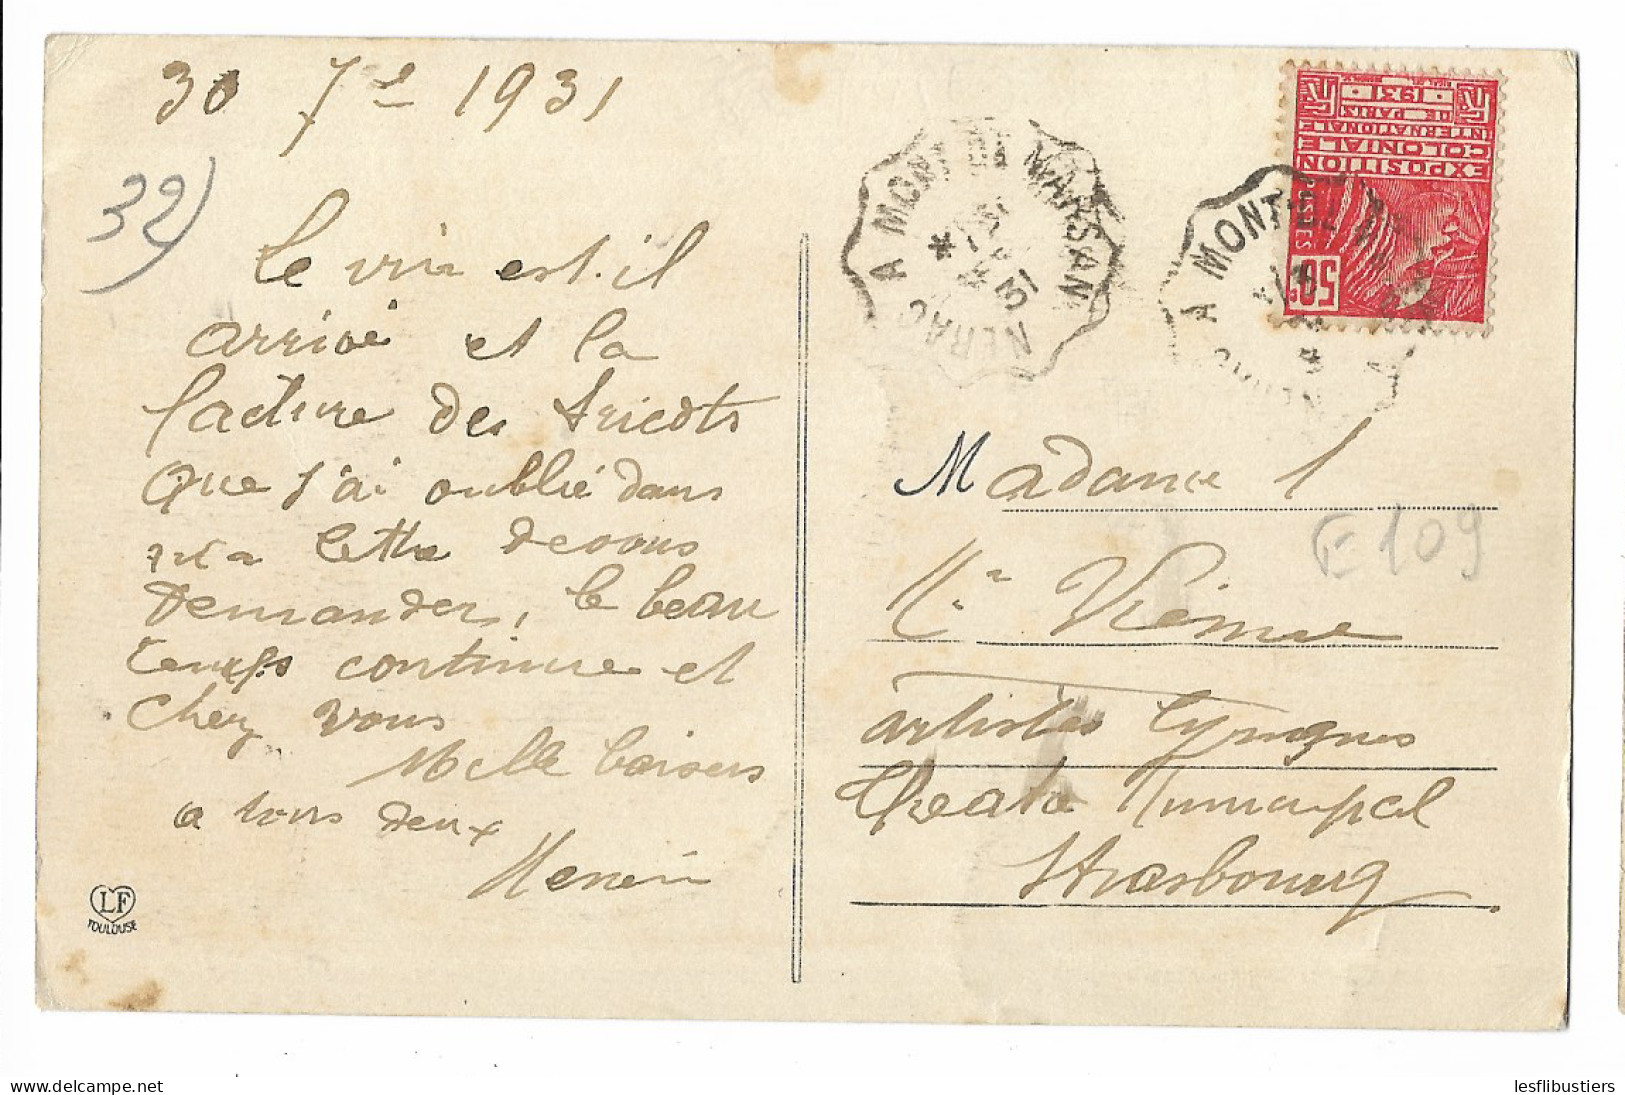 30 7e 1931
32)
Le vin est-il
arrivé et la
facture des tricots
que j'ai oublié dans
ma lettre de vous
demander, le beau
temps continue et
chez vous
Mille baisers
a tous deux
LF
TOULOUSE
NERAC A MONT DE MARSAN
*
31
A MONT-DE-M
EXPOSITION
COLONIALE
INTERNATIONALE
DE PARIS
1931
POSTES
50c
Madame
E 109
artistes lyriques
Theatre Municipal
Strasbourg
lesflibustiers